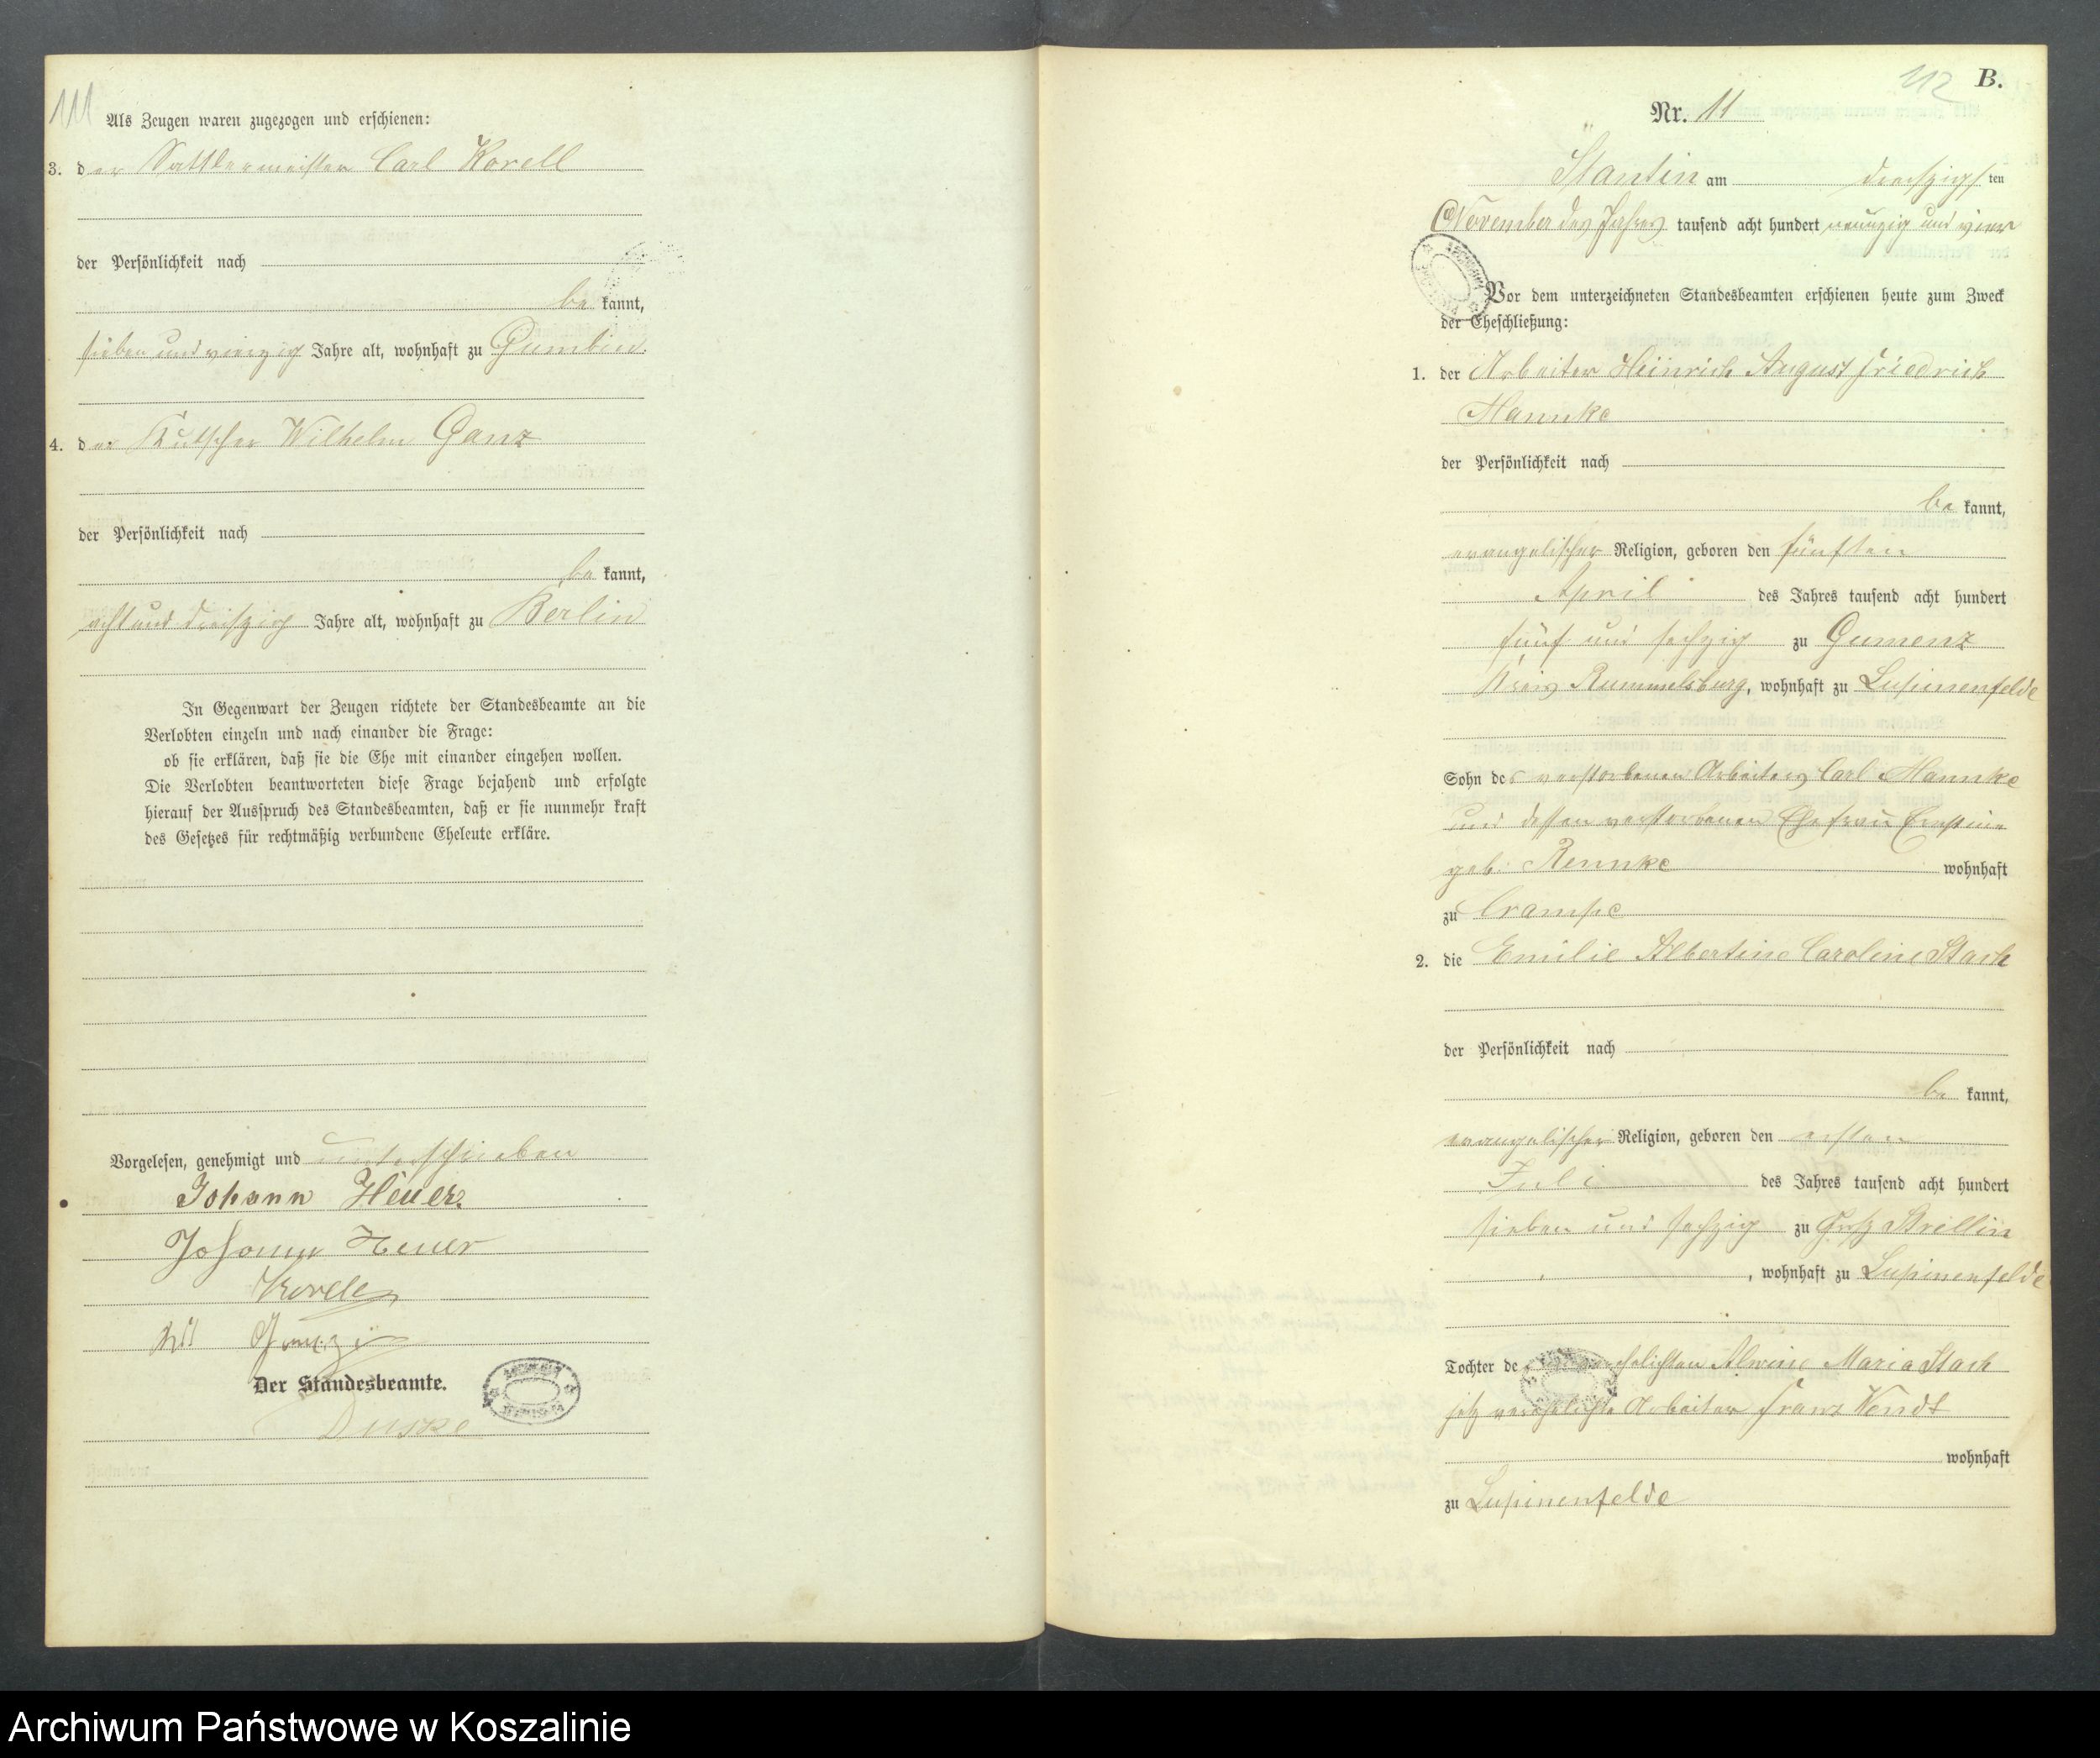 111
Als Zeugen waren zugezogen und erschienen:
3. der Sattlermeister Carl Korell
der Persönlichkeit nach
be kannt,
sieben und vierzig Jahre alt, wohnhaft zu Gumbin.
4. der Kutscher Wilhelm Ganz
der Persönlichkeit nach
be kannt,
acht und dreißig Jahre alt, wohnhaft zu Berlin
In Gegenwart der Zeugen richtete der Standesbeamte an die
Verlobten einzeln und nach einander die Frage:
ob sie erklären, daß sie die Ehe mit einander eingehen wollen.
Die Verlobten beantworteten diese Frage bejahend und erfolgte
hierauf der Ausspruch des Standesbeamten, daß er sie nunmehr kraft
des Gesetzes für rechtmäßig verbundene Eheleute erkläre.
Vorgelesen, genehmigt und unterschrieben
Johann Heuer
Heuer
Korell
Der Standesbeamte.
112 B.
Nr. 11
Stantin am dreißigsten
November des Jahres tausend acht hundert neunzig und vier
Vor dem unterzeichneten Standesbeamten erschienen heute zum Zweck
der Eheschließung:
1. der Arbeiter Heinrich August Friedrich
Hannke
der Persönlichkeit nach
be kannt,
evangelischer Religion, geboren den fünften
April des Jahres tausend acht hundert
fünf und sechzig zu Gumenz
Kreis Rummelsburg, wohnhaft zu Lupinenfelde
Sohn des verstorbenen Arbeiters Carl Hannke
und dessen verstorbenen Ehefrau Ernstine
geb. Rennke wohnhaft
zu Crampe
2. die Emilie Albertine Caroline Stach
der Persönlichkeit nach
be kannt,
evangelischer Religion, geboren den ersten
Juli des Jahres tausend acht hundert
sieben und sechzig zu Groß Strellin
, wohnhaft zu Lupinenfelde
Tochter de Alwine Maria Stach
jetz verehelichte Arbeiter Franz Wendt
wohnhaft
zu Lupinenfelde
Archiwum Państwowe w Koszalinie